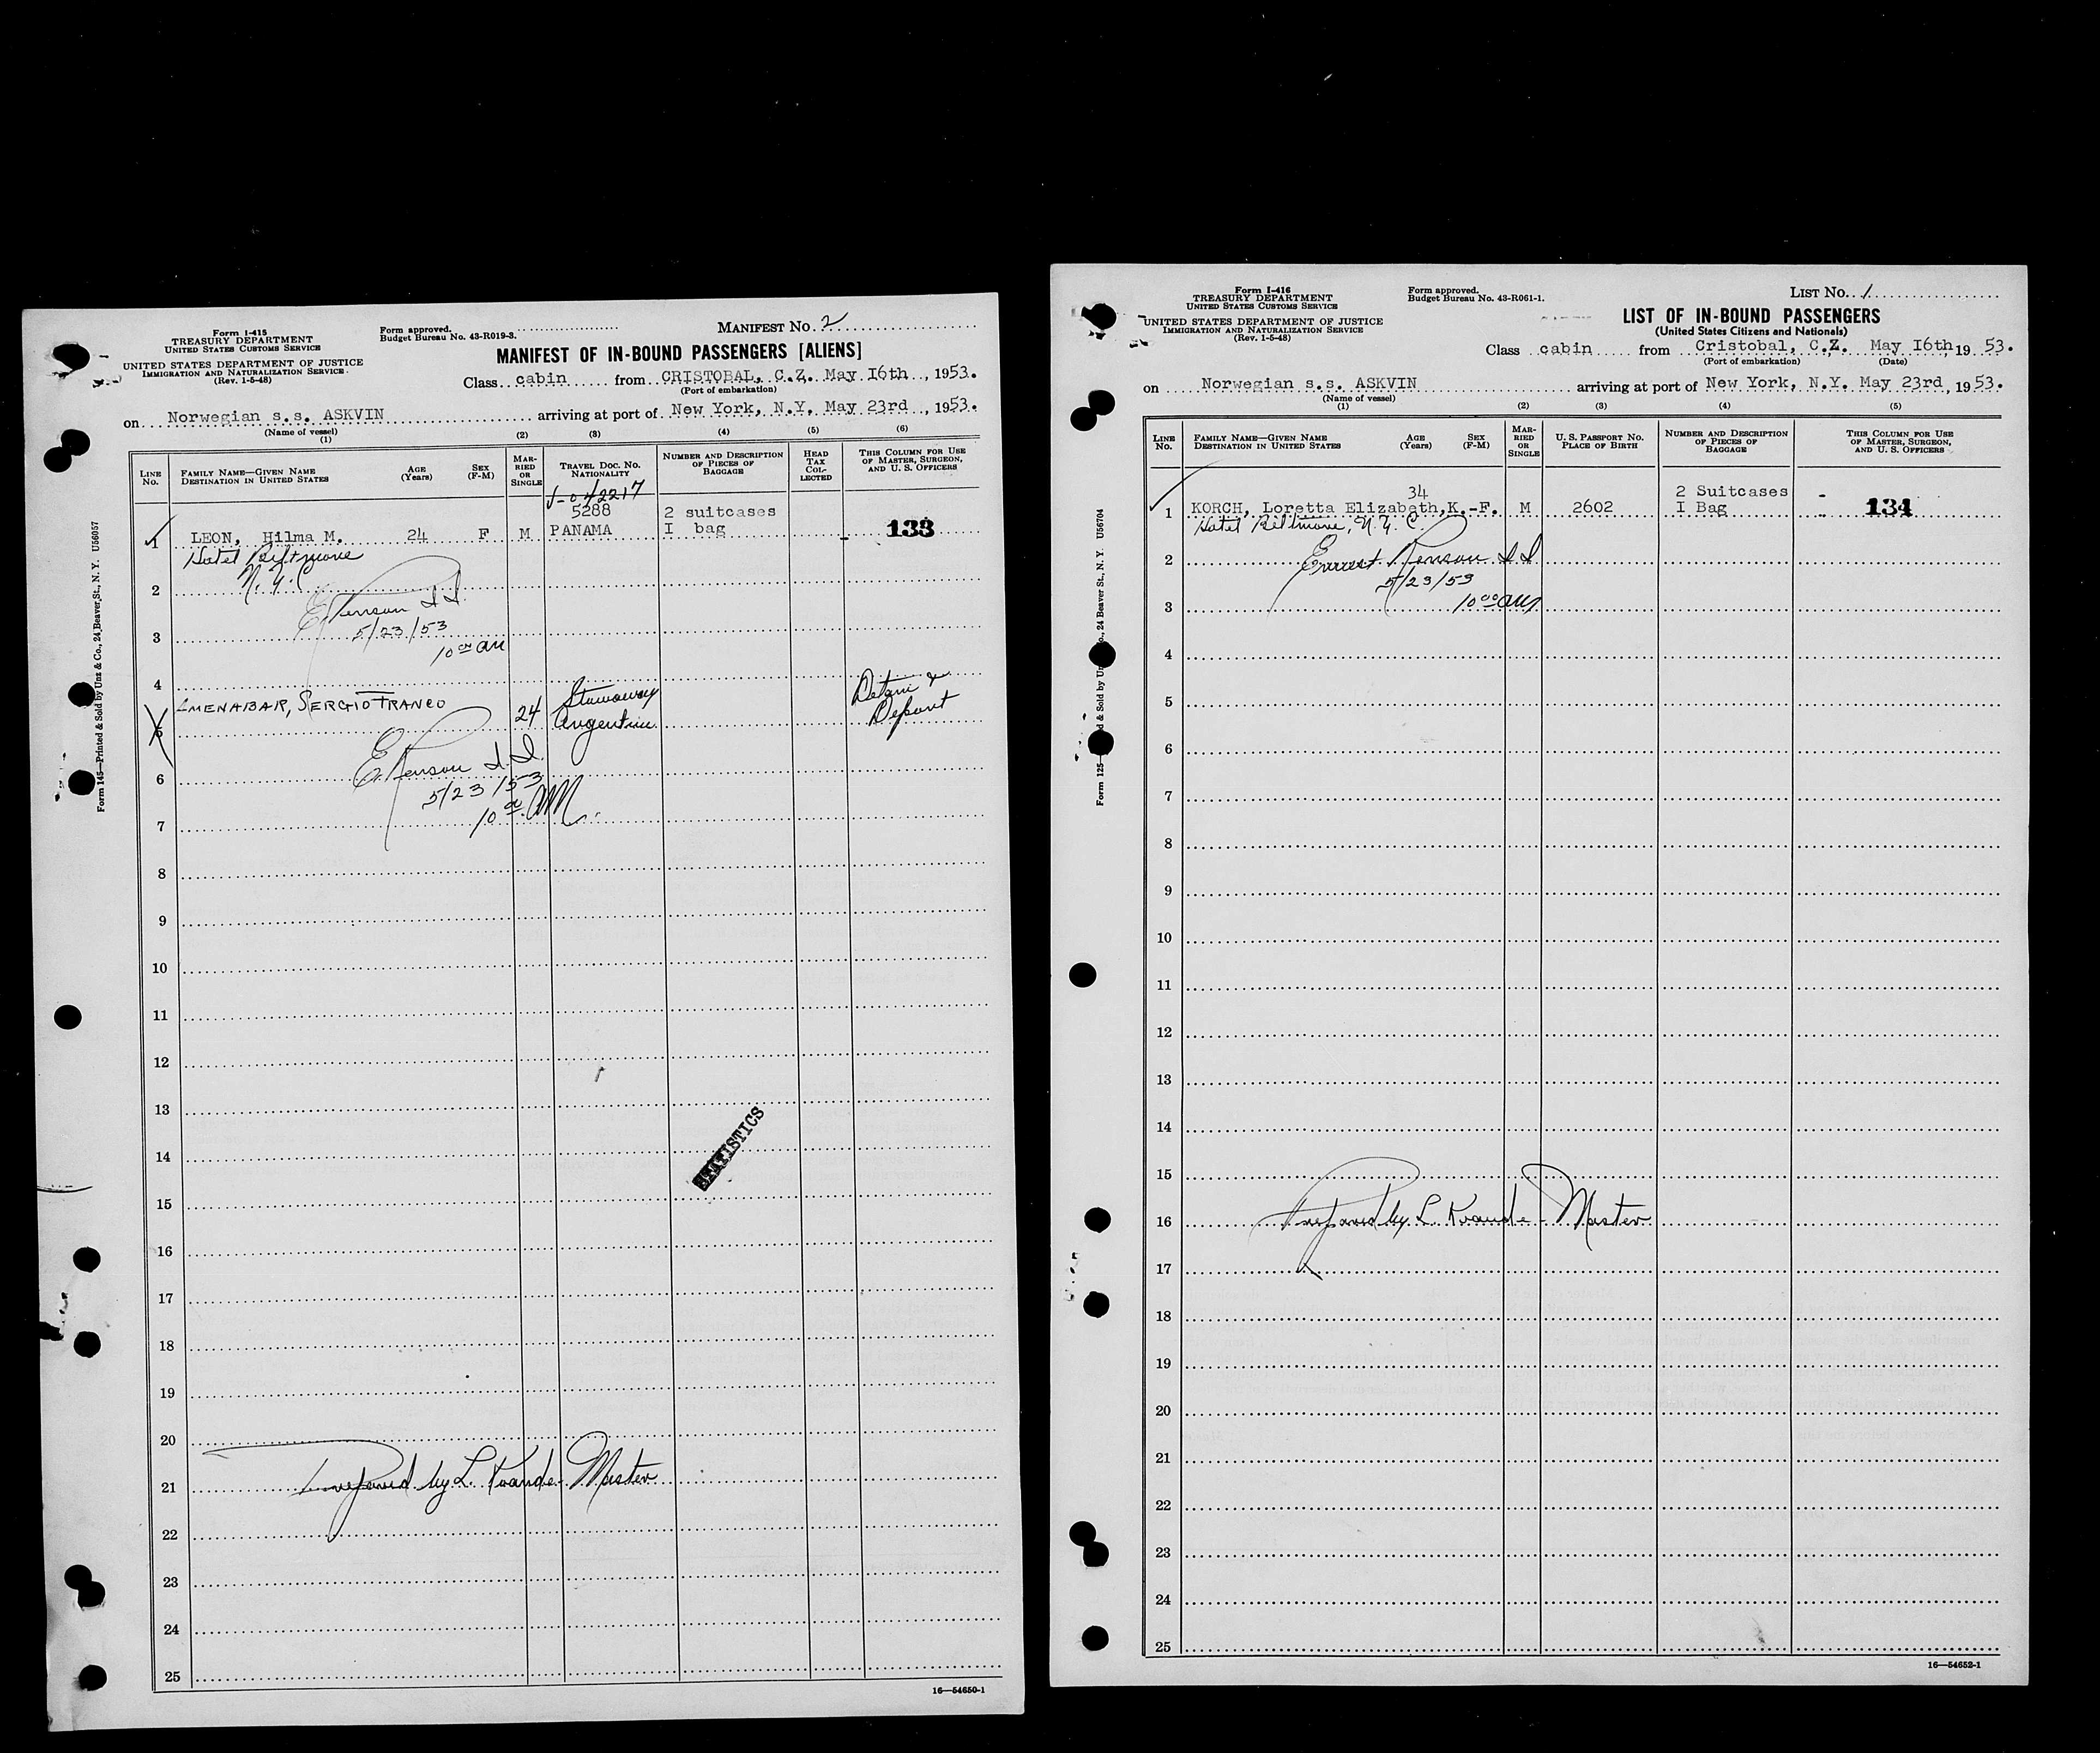 Form I-415
TREASURY DEPARTMENT
UNITED STATES CUSTOMS SERVICE
UNITED STATES DEPARTMENT OF JUSTICE
IMMIGRATION AND NATURALIZATION SERVICE
(Rev. 1-5-48)
Form approved.
Budget Bureau No. 43-R019-3.
MANIFEST NO. 2
MANIFEST OF IN-BOUND PASSENGERS [ALIENS]
Class cabin from CRISTOBAL, C.Z. May I6th, 1953.
(Port of embarkation)
on Norwegian s.s. ASKVIN arriving at port of New York, N.Y. May 23rd, 1953.
(Name of vessel)
(1) (2) (3) (4) (5) (6)
LINE NO.
FAMILY NAME—GIVEN NAME
DESTINATION IN UNITED STATES
AGE (Years)
SEX (F-M)
MARRIED OR SINGLE
TRAVEL DOC. NO.
NATIONALITY
NUMBER AND DESCRIPTION OF PIECES OF BAGGAGE
HEAD TAX COLLECTED
THIS COLUMN FOR USE OF MASTER, SURGEON, AND U. S. OFFICERS
V-042217
5288 2 suitcases
1 LEON, Hilma M. 24 F M PANAMA I bag 133
Hotel Biltmore
2 N.Y.C.
3 5/23/53
10 00 AM
4
AMENABAR, SERGIO FRANCO 24 Stowaway Detain &
5 Argentine Deport
6 5/23/53
7 10 00 AM
8
9
10
11
12
13
STATISTICS
14
15
16
17
18
19
20
21 Prepared by L. Kvande - Master
22
23
24
25
16—54650-1
Form 145—Printed & Sold by Unz & Co., 24 Beaver St., N. Y. U56057
Form I-416
TREASURY DEPARTMENT
UNITED STATES CUSTOMS SERVICE
UNITED STATES DEPARTMENT OF JUSTICE
IMMIGRATION AND NATURALIZATION SERVICE
(Rev. 1-5-48)
Form approved.
Budget Bureau No. 43-R061-1.
LIST NO. 1
LIST OF IN-BOUND PASSENGERS
(United States Citizens and Nationals)
Class cabin from Cristobal, C.Z. May I6th, 19 53.
(Port of embarkation) (Date)
on Norwegian s.s. ASKVIN arriving at port of New York, N.Y. May 23rd, 1953.
(Name of vessel)
(1) (2) (3) (4) (5)
LINE NO.
FAMILY NAME—GIVEN NAME
DESTINATION IN UNITED STATES
AGE (Years)
SEX (F-M)
MARRIED OR SINGLE
U. S. PASSPORT NO.
PLACE OF BIRTH
NUMBER AND DESCRIPTION OF PIECES OF BAGGAGE
THIS COLUMN FOR USE OF MASTER, SURGEON, AND U. S. OFFICERS
34 2 Suitcases
1 KORCH, Loretta Elizabeth,K.-F. M 2602 I Bag 134
Hotel Biltmore, N.Y.C.
2 5/23/53
3 10 00 AM
4
5
6
7
8
9
10
11
12
13
14
15
16 Prepared by L. Kvande - Master
17
18
19
20
21
22
23
24
25
16—54652-1